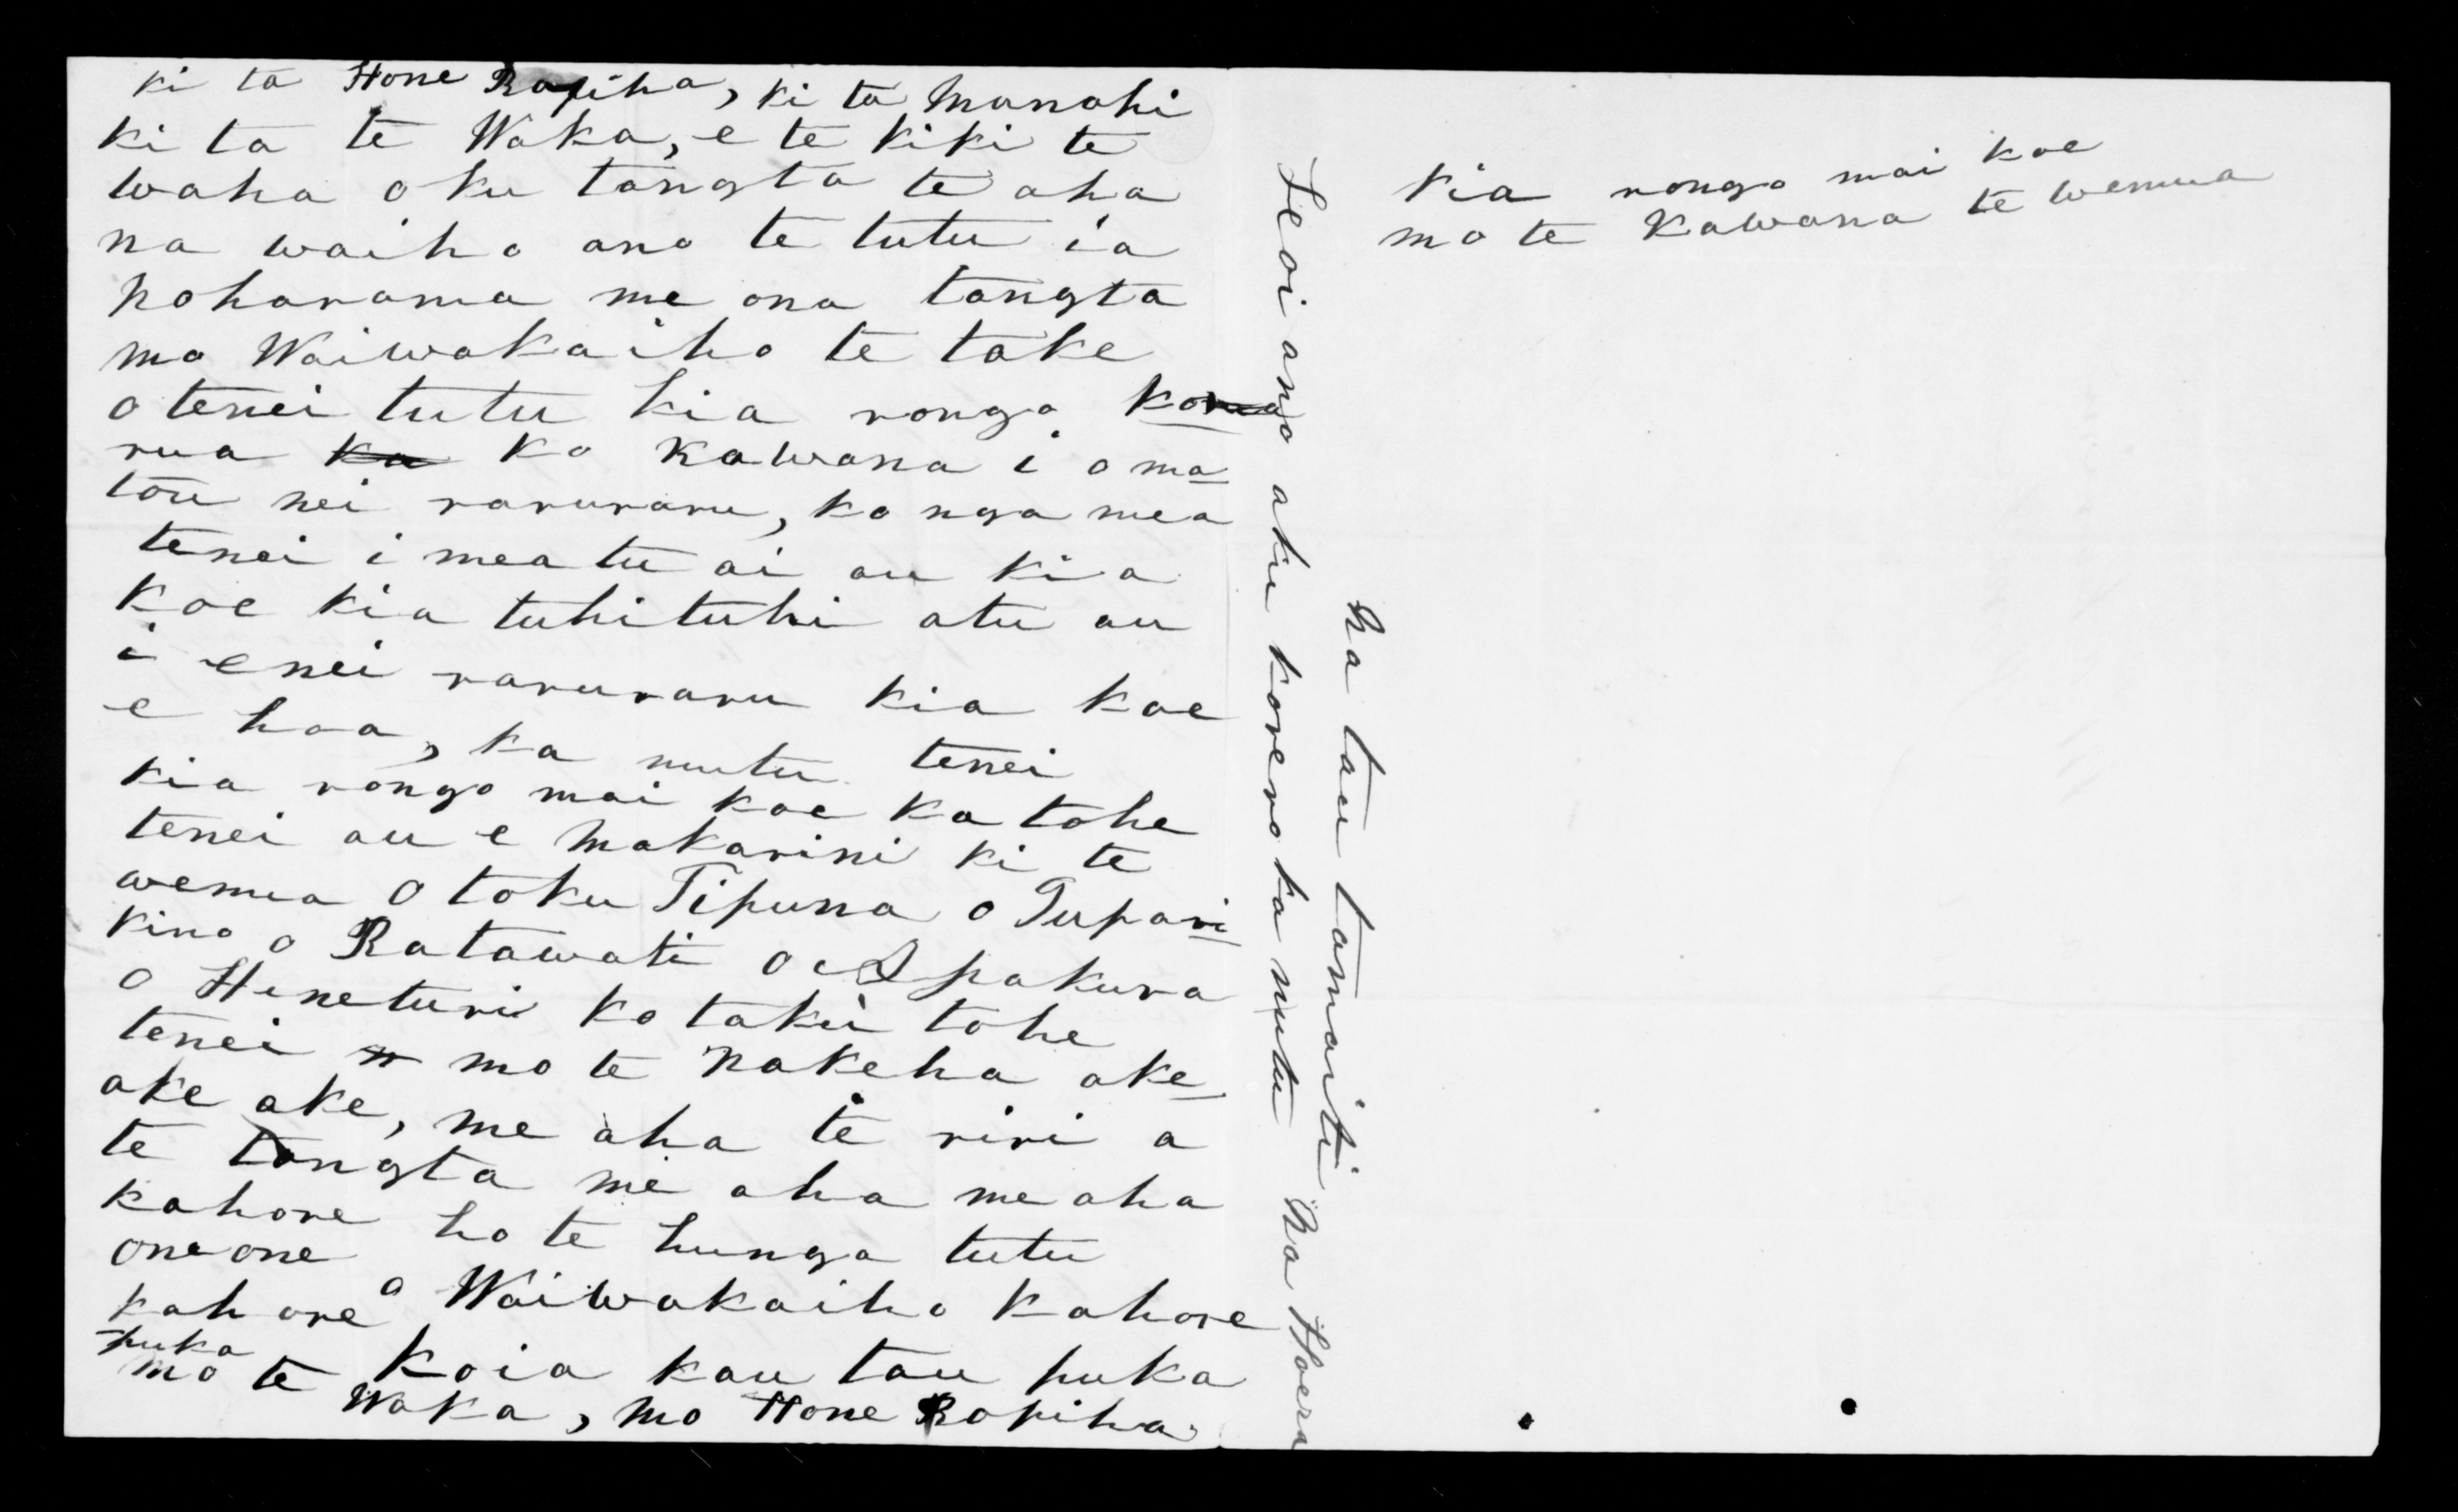 ki ta Hone Ropiha, ki ta Manahi
ki ta te Waka, e te kiki te
waha o ku tangta te aha
na waiho ano te tutu ia
Poharama me ona tangta
mo Waiwakaiho te take
o tenei tutu kia rongo korua
rua ka ko Kawana i o ma
tou nei raruraru, ko nga mea
tenei i mea tu ai au kia
koe kia tuhituhi atu au
i enei raruraru kia koe
e hoa, ka mutu tenei
kia rongo mai koe ka tohe
tenei au e Makarini ki te
wenua o toku Tipuna o Tupari
kino o Ratawati o Apakura
o Hineturi ko taku tohe
tenei mo te Pakeha ake
ake ake, me aha te riri a
te tangta me aha me aha
kahore ho te hunga tutu
oneone
kahore o Waiwakaiho kahore
puka
mo te Koia kau tau puka
Waka, mo Hone Ropiha
Heoi ano aku korero ka mutu
Na tau tamaiti Na Hoera
kia rongo mai koe
mo te Kawana te wenua